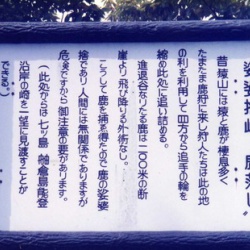 昔猿山には猿と鹿が棲息多く
たまたま鹿狩に来し狩人たちは此の地
の利を利用して四方から追手の輪を
縮め此処に追い詰める。
進退谷りたる鹿は二〇〇米の断
崖より飛び降りる外術なし。
こうして鹿を捕え得たので鹿の娑婆
捨であり人間には無関係でありますが
危険ですから御注意の要があります。
(此処からは七ッ島 舳倉島能登
沿岸の崎を一望に見渡すことが
できる。)